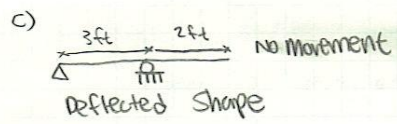 c)
3ft 2ft No Movement
Deflected Shape